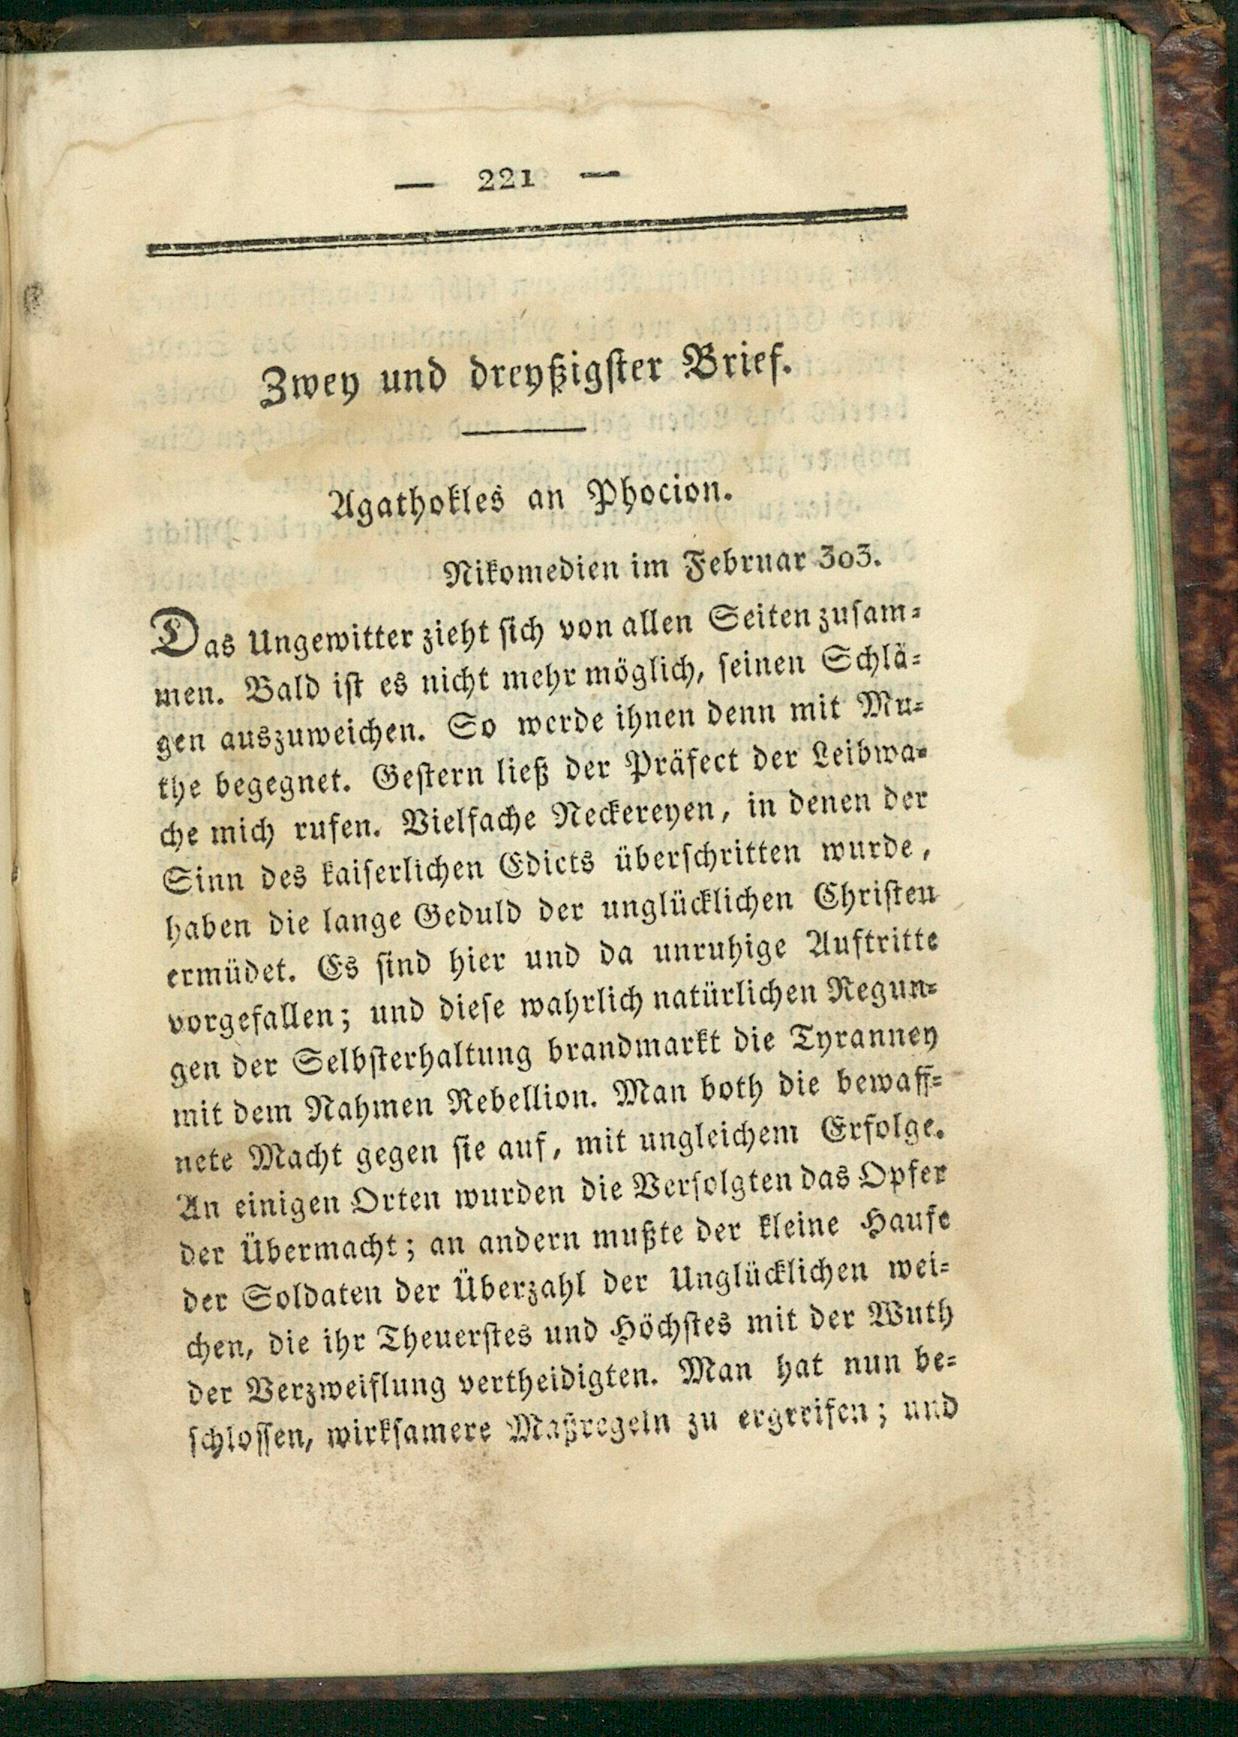 — 221 —
Zwey und dreyßigster Brief.
Agathokles an Phocion.
Nikomedien im Februar 303.
Das Ungewitter zieht sich von allen Seiten zusam-
men. Bald ist es nicht mehr möglich, seinen Schlä-
gen auszuweichen. So werde ihnen denn mit Mu-
the begegnet. Gestern ließ der Präfect der Leibwa-
che mich rufen. Vielfache Neckereyen, in denen der
Sinn des kaiserlichen Edicts überschritten wurde,
haben die lange Geduld der unglücklichen Christen
ermüdet. Es sind hier und da unruhige Auftritte
vorgefallen; und diese wahrlich natürlichen Regun-
gen der Selbsterhaltung brandmarkt die Tyranney
mit dem Nahmen Rebellion. Man both die bewaff-
nete Macht gegen sie auf, mit ungleichem Erfolge.
An einigen Orten wurden die Verfolgten das Opfer
der Übermacht; an andern mußte der kleine Haufe
der Soldaten der Überzahl der Unglücklichen wei-
chen, die ihr Theuerstes und Höchstes mit der Wuth
der Verzweiflung vertheidigten. Man hat nun be-
schlossen, wirksamere Maßregeln zu ergreifen; und